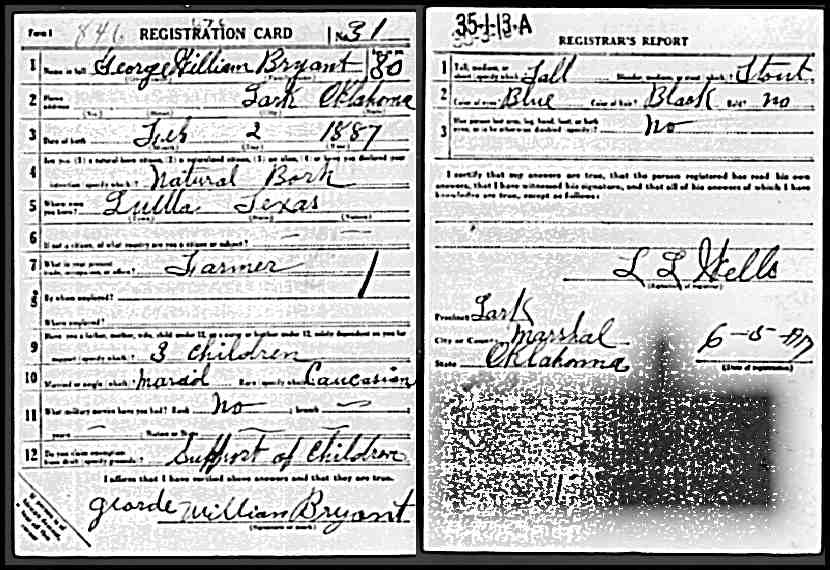 Form 1 841 676 REGISTRATION CARD No. 31
1 Name in full George William Bryant Age, in yrs. 30
2 Home address Lark Oklahoma
3 Date of birth Feb 2 1887
4 Are you (1) a natural-born citizen, (2) a naturalized citizen, (3) an alien, (4) or have you declared your
intention (specify which)? Natural Born
5 Where were you born? Texas
6 If not a citizen, of what country are you a citizen or subject?
7 What is your present trade, occupation, or office? Farmer
8 By whom employed?
Where employed?
9 Have you a father, mother, wife, child under 12, or a sister or brother under 12, solely dependent on you for
support (specify which)? 3 Children
10 Married or single (which)? Race (specify which)? Caucasian
11 What military service have you had? Rank No ; branch
years ; Nation or State
12 Do you claim exemption from draft (specify grounds)? Support of Children
I affirm that I have verified above answers and that they are true.
george William Bryant
(Signature or mark)
35-1-13-A
REGISTRAR'S REPORT
1 Tall, medium, or short (specify which)? Tall Slender, medium, or stout (which)? Stout
2 Color of eyes? Blue Color of hair? Black Bald? No
3 Has person lost arm, leg, hand, foot, or both eyes, or is he otherwise disabled (specify)? No
I certify that my answers are true, that the person registered has read his own
answers, that I have witnessed his signature, and that all of his answers of which I have
knowledge are true, except as follows:
L L Wells
(Signature of registrar)
Precinct Lark
City or County Marshal
State Oklahoma
6-5-17
(Date of registration)